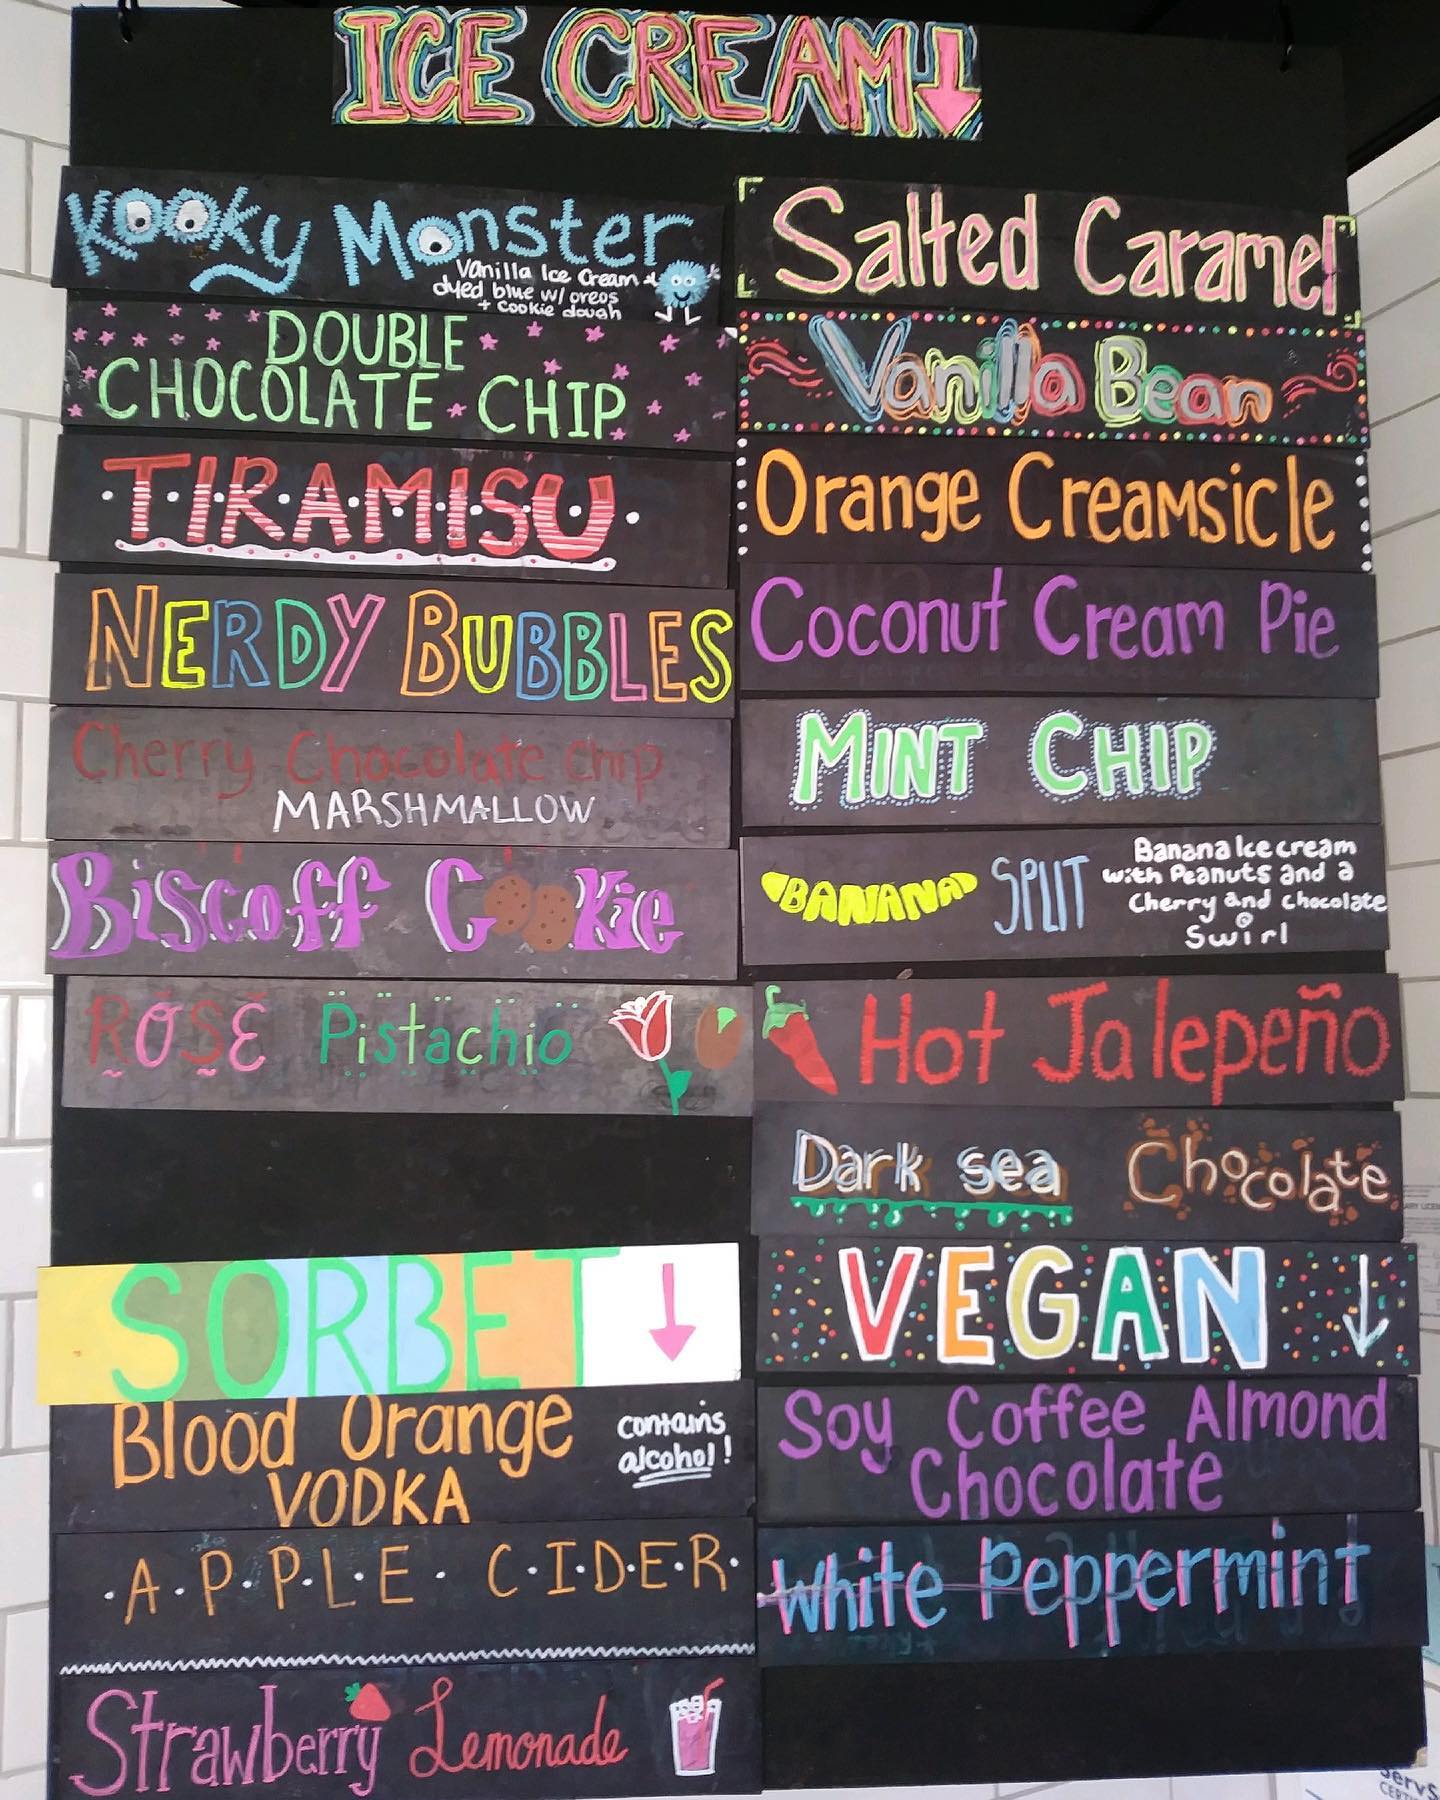 ICE CREAM
Kooky Monster
Vanilla Ice Cream
dyed blue w/ oreos
+ cookie dough
DOUBLE
CHOCOLATE CHIP
TIRAMISU
NERDY BUBBLES
Cherry Chocolate chip
MARSHMALLOW
Biscoff Cookie
ROSE Pistachio
SORBET
Blood Orange
VODKA
contains
alcohol!
APPLE CIDER
Strawberry Lemonade
Salted Caramel
Vanilla Bean
Orange Creamsicle
Coconut Cream Pie
MINT CHIP
BANANA SPLIT
Banana Ice cream
with Peanuts and a
Cherry and chocolate
Swirl
Hot Jalepeño
Dark sea Chocolate
VEGAN
Soy Coffee Almond
Chocolate
White Peppermint
ServS